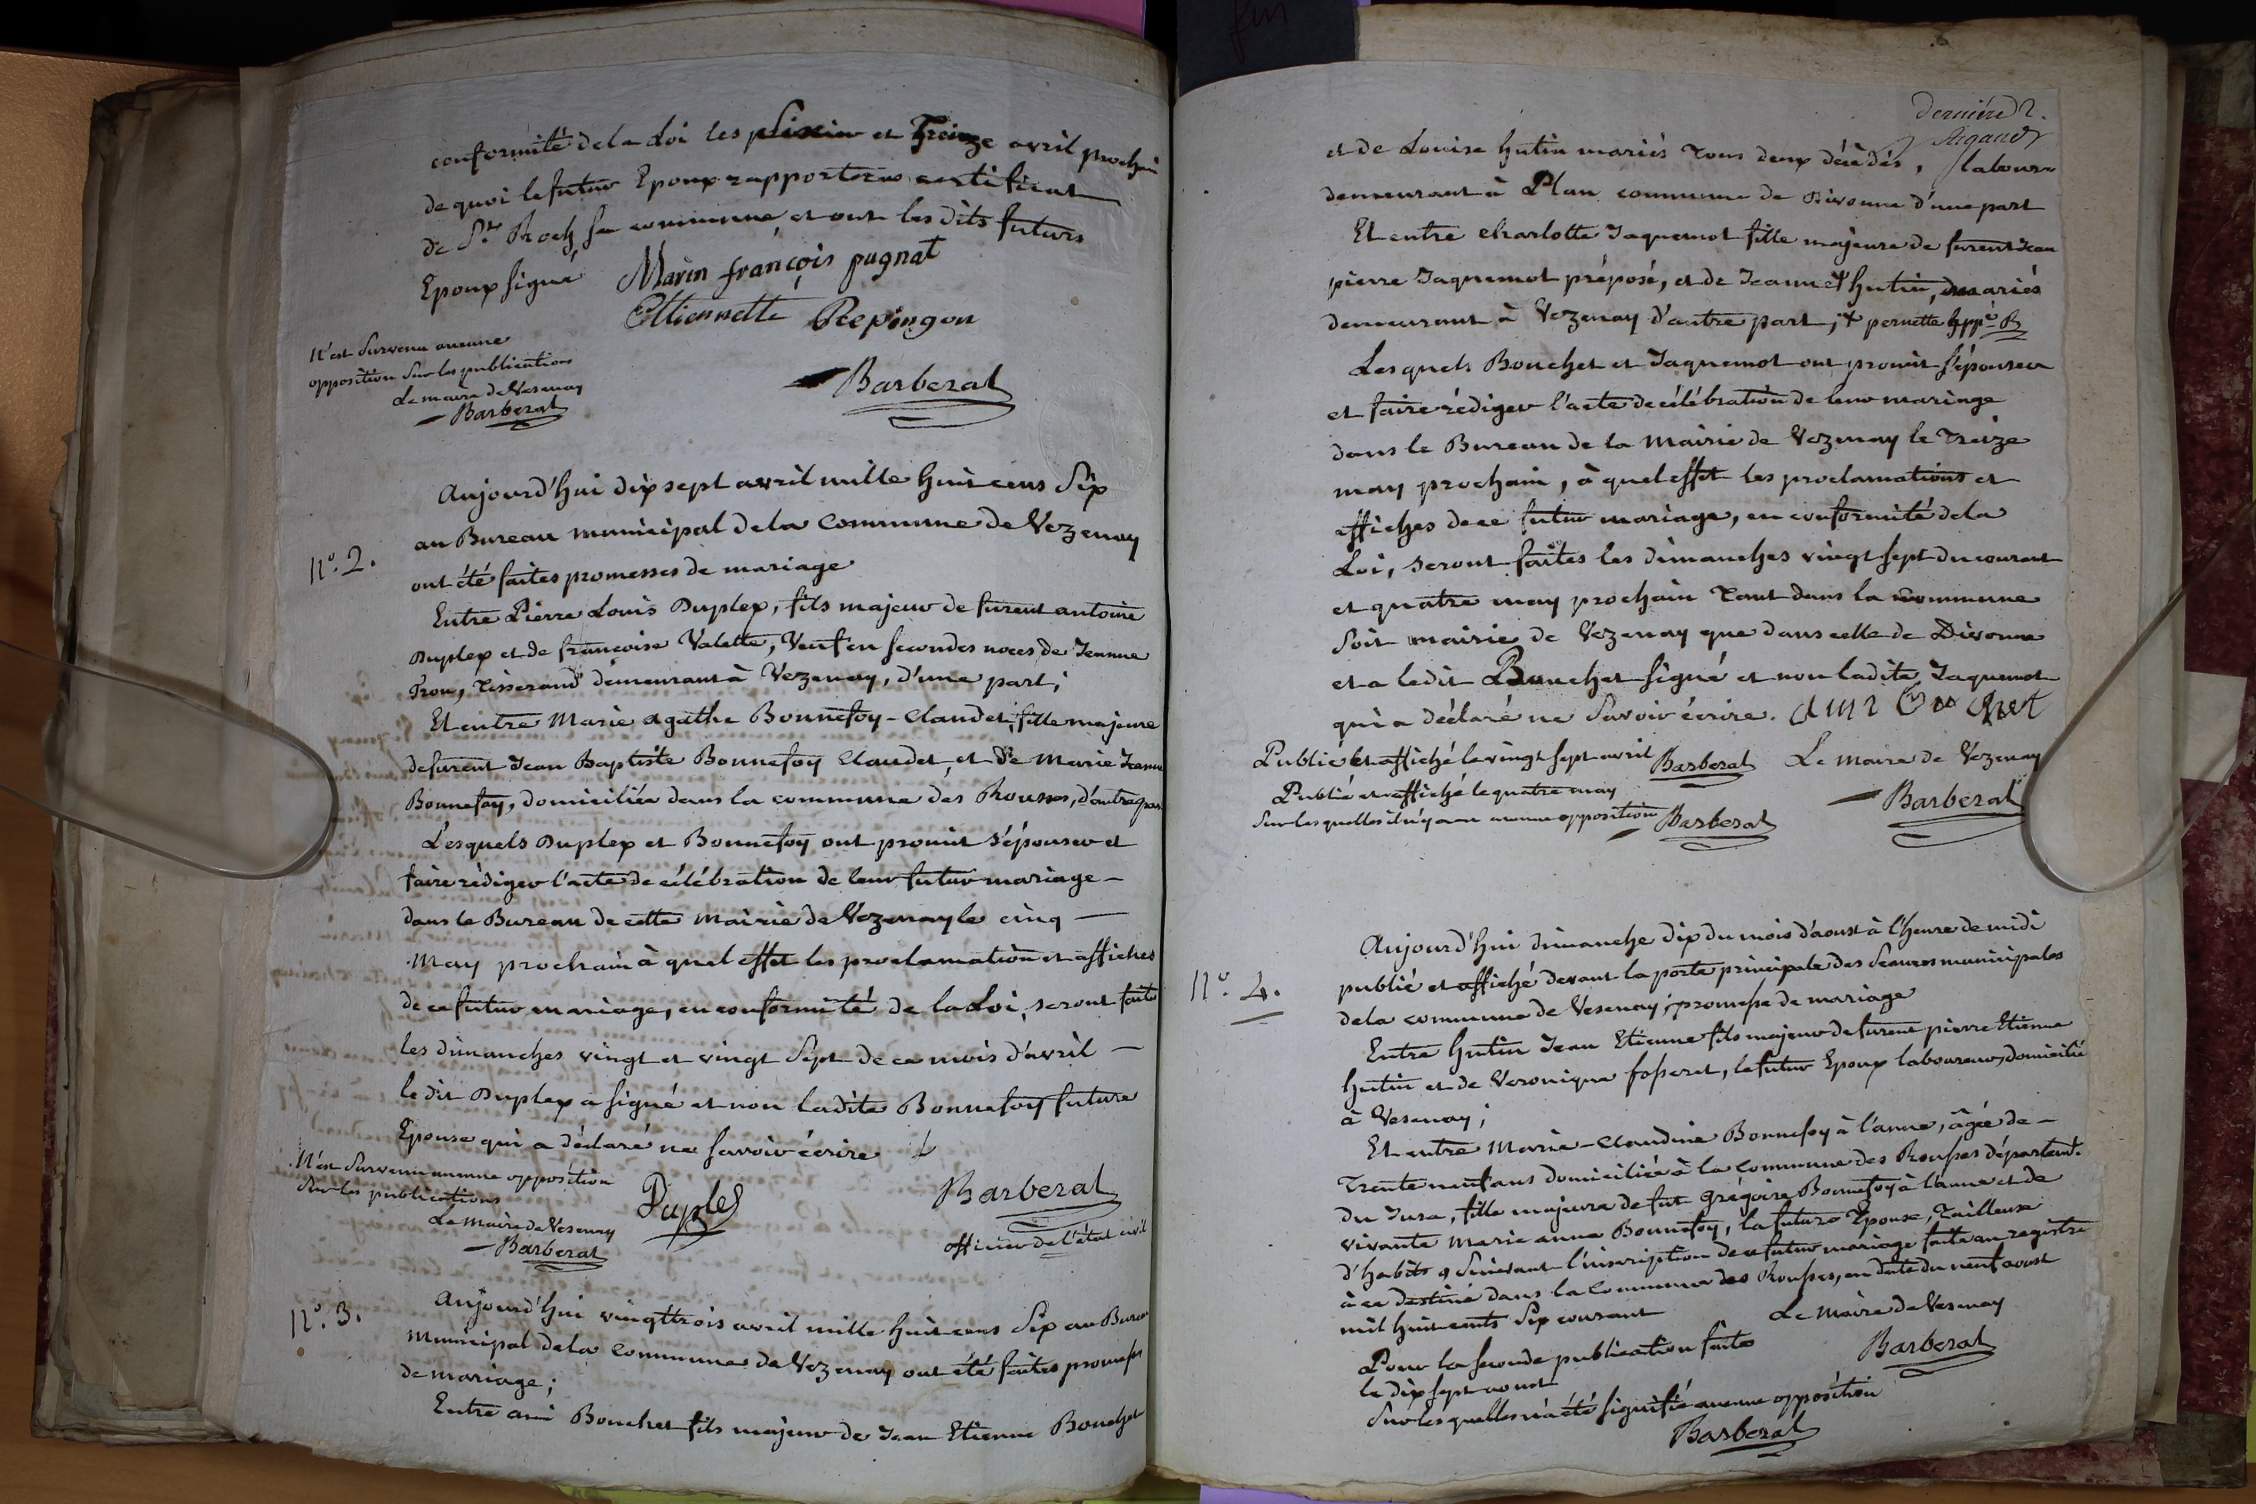 conformité de la Loi les Sixiew et Treize avril prochain
de quoi le futur Epoux rapportera certificat
de St. Roch sa commune, et ont les dits futurs
Epoux signé Marin françois pugnat
Ettiennette Repingon
N'est Survenu aucune
opposition Sur les publications
Le maire de Vesenay
Barberat
Barberat
Aujourd'hui dix sept avril mille huit cens Six
au Bureau municipal de la Commune de Vezenay
N.o 2.
ont été faites promesses de mariage
Entre Pierre Louis Duplex, fils majeur de furent antoine
Duplex et de françoise Valette, Veuf en secondes noces de Jeanne
Trou, Tisserand demeurant à Vezenay, d'une part;
Et entre Marie Agathe Bonnefoy-Claudet, fille majeure
de furent Jean Baptiste Bonnefoy Claudet, et de Marie Jeanne
Bonnefoy, domiciliée dans la commune des Rousses, d'autre part
Lesquels Duplex et Bonnefoy ont promit s'épouser et
faire rédiger l'acte de célébration de leur futur mariage -
dans le Bureau de cette Mairie de Vezenay le cinq -
May prochain à quel effet les proclamation et affiches
de ce futur mariage, en conformité de la Loi, seront faites
les dimanches vingt et vingt Sept de ce mois d'avril -
le dit Duplex a signé et non ladite Bonnefoy future
Epouse qui a déclaré ne savoir écrire
N'est Survenu aucune opposition
Sur les publications
Le maire de Vesenay
Barberat
Duplex
Barberat
officier de l'état civil
N.o 3.
Aujourd'hui vingt trois avril mille huit cens Six au Bureau
Municipal de la Commune de Vezenay ont été faites promesses
de mariage;
Entre ami Bouchet fils majeur de Jean Etienne Bouchet
Dernière 2.
Rigaud
et de Louise hutin mariés tous deux décédés, laboureur
demeurant à Plan commune de Divonne d'une part
Et entre Charlotte Jaquemot fille majeure de furent Jean
pierre Jaquemot préposé, et de Jeanne + hutin, mariés
demeurant à Vezenay d'autre part; + pernette appé
Lesquels Bouchet et Jaquemot ont promit s'épouser
et faire rédiger l'acte de célébration de leur mariage
dans le Bureau de la Mairie de Vezenay le Treize
may prochain, à quel effet les proclamations et
affiches de ce futur mariage, en conformité de la
Loi, seront faites les dimanches vingt sept du courant
et quatre may prochain tant dans la Commune
Soit mairie de Vezenay que dans celle de Divonne
et a ledit Bouchet signé et non ladite Jaquemot
qui a déclaré ne savoir écrire. Ami Bouchet
Publié et affiché le vingt sept avril Barberat
Le maire de Vezenay
Publié et affiché le quatre may
Barberat
Sur les quelles il n'y a eu aucune opposition Barberat
Aujourd'hui dimanche dix du mois d'aoust à l'heure de midi
N.o 4.
publié et affiché devant la porte principale des Seances municipales
de la commune de Vesenay; promesse de mariage
Entre hutin Jean Etienne fils majeur de furent pierre Etienne
hutin et de Veronique fosseret, le futur Epoux laboureur, domicilié
à Vesenay;
Et entre Marie-Claudine Bonnefoy à l'anne, âgée de -
Trente neuf ans domiciliée à la Commune des Rousses départemt.
du Jura, fille majeure de fut grégoire Bonnefoy à l'anne et de
vivante Marie anne Bonnefoy, la future Epouse, Tailleuse
d'habits & Suivant l'inscription de ce futur mariage faite au registre
à ce destiné dans la Commune des Rousses, en date du neuf aoust
mil huit cents Six courant
Le Maire de Vesenay
Barberat
Pour la seconde publication faite
le dix sept aoust
Sur les quelles n'a été signifié aucune opposition
Barberat